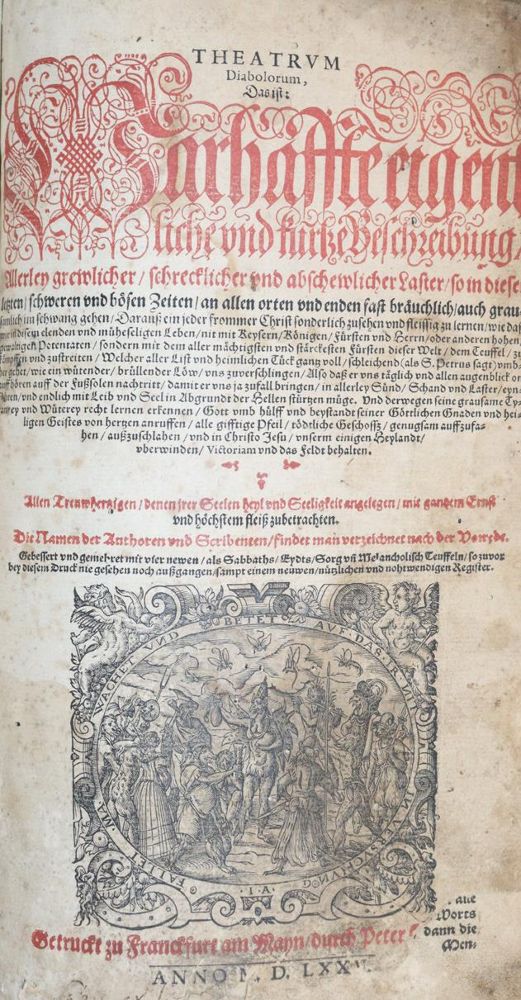 THEATRVM
Diabolorum,
Das ist:
Warhaffte eigent
liche vnd kurtze Beschreibung/
Allerley grewlicher / schrecklicher vnd abschewlicher Laster / so in diesen
letzten / schweren vnd bösen Zeiten / an allen orten vnd enden fast bräuchlich / auch grau
samlich im schwang gehen / Darauß ein jeder frommer Christ sonderlich zusehen vnd fleissig zu lernen / wie daß
wir in diesem elenden vnd müheseligen Leben / nit mit Keysern / Königen / Fürsten vnd Herrn / oder anderen hohen /
gewaltigen Potentaten / sondern mit dem aller mächtigsten vnd stärckesten Fürsten dieser Welt / dem Teuffel / zu
kämpffen vnd zustreiten / Welcher aller List vnd heimlichen Tück gantz voll / schleichend (als S. Petrus sagt) vmb-
her gehet / wie ein wütender / brüllender Löw / vns zuverschlingen / Also daß er vns täglich vnd allen augenblick
auff den Fußsolen nachtritt / damit er vns ja zufall bringen / in allerley Sünd / Schand vnd Laster /
führen / vnd endlich mit Leib vnd Seel in Abgrund der Hellen stürtzen müge. Vnd derwegen seine grausame Ty-
ranney vnd Wüterey recht lernen erkennen / Gott vmb hülff vnd beystand seiner Göttlichen Gnaden vnd hei-
ligen Geistes von hertzen anruffen / alle gifftige Pfeil / tödtliche Geschoß / genugsam auffzufa-
hen / außzuschlahen / vnd in Christo Jesu / vnserm einigen Heylandt /
vberwinden / Victoriam vnd das Feldt behalten.
Allen Trewhertzigen / denen jrer Seelen heyl vnd Seeligkeit angelegen / mit gantzem Ernst
vnd höchstem fleiß zubetrachten.
Die Namen der Authoren vnd Scribenten / findet man verzeichnet nach der Vorrede.
Gebessert vnd gemehret mit vier newen / als Sabbaths / Eydts / Sorg vñ Melancholisch Teuffeln / so zuvor
bey diesem Druck nie gesehen noch außgangen / sampt einem neuwen / nützlichen vnd nohtwendigen Register.
WACHET VND BETET AVF DAS IR NIT IN VERSVCHVNG FALLET. MA
I A
Getruckt zu Franckfurt am Mayn / durch Peter
ANNO M. D. LXX
aue
Worts
dann die
Men-